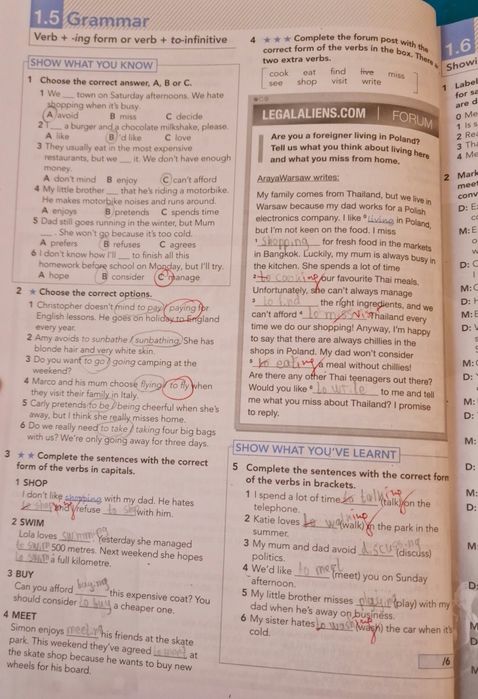 1.5 Grammar
Verb + -ing form or verb + to-infinitive
SHOW WHAT YOU KNOW
1 Choose the correct answer, A, B or C.
1 We ___ town on Saturday afternoons. We hate
shopping when it's busy.
A avoid B miss C decide
2 I ___ a burger and a chocolate milkshake, please.
A like B 'd like C love
3 They usually eat in the most expensive
restaurants, but we ___ it. We don't have enough
money.
A don't mind B enjoy C can't afford
4 My little brother ___ that he's riding a motorbike.
He makes motorbike noises and runs around.
A enjoys B pretends C spends time
5 Dad still goes running in the winter, but Mum
___. She won't go because it's too cold.
A prefers B refuses C agrees
6 I don't know how I'll ___ to finish all this
homework before school on Monday, but I'll try.
A hope B consider C manage
2 ★ Choose the correct options.
1 Christopher doesn't mind to pay / paying for
English lessons. He goes on holiday to England
every year.
2 Amy avoids to sunbathe / sunbathing. She has
blonde hair and very white skin.
3 Do you want to go / going camping at the
weekend?
4 Marco and his mum choose flying / to fly when
they visit their family in Italy.
5 Carly pretends to be / being cheerful when she's
away, but I think she really misses home.
6 Do we really need to take / taking four big bags
with us? We're only going away for three days.
3 ★★ Complete the sentences with the correct
form of the verbs in capitals.
1 SHOP
I don't like shopping with my dad. He hates
to shop ing and refuse to shop with him.
2 SWIM
Lola loves swimming. Yesterday she managed
to swim 500 metres. Next weekend she hopes
to swim a full kilometre.
3 BUY
Can you afford buying this expensive coat? You
should consider to buy a cheaper one.
4 MEET
Simon enjoys meeting his friends at the skate
park. This weekend they've agreed to meet at
the skate shop because he wants to buy new
wheels for his board.
4 ★★★ Complete the forum post with the
correct form of the verbs in the box. There
two extra verbs.
cook eat find live miss
see shop visit write
LEGALALIENS.COM | FORUM
Are you a foreigner living in Poland?
Tell us what you think about living here
and what you miss from home.
ArayaWarsaw writes:
My family comes from Thailand, but we live in
Warsaw because my dad works for a Polish
electronics company. I like ⁰living in Poland,
but I'm not keen on the food. I miss
¹shopping for fresh food in the markets
in Bangkok. Luckily, my mum is always busy in
the kitchen. She spends a lot of time
²to cooking our favourite Thai meals.
Unfortunately, she can't always manage
³to find the right ingredients, and we
can't afford ⁴to miss visit Thailand every
time we do our shopping! Anyway, I'm happy
to say that there are always chillies in the
shops in Poland. My dad won't consider
⁵to eating a meal without chillies!
Are there any other Thai teenagers out there?
Would you like ⁶to write to me and tell
me what you miss about Thailand? I promise
to reply.
SHOW WHAT YOU'VE LEARNT
5 Complete the sentences with the correct form
of the verbs in brackets.
1 I spend a lot of time to talk ing (talk) on the
telephone.
2 Katie loves to walk ing (walk) in the park in the
summer.
3 My mum and dad avoid discussing (discuss)
politics.
4 We'd like to meet (meet) you on Sunday
afternoon.
5 My little brother misses playing (play) with my
dad when he's away on business.
6 My sister hates to wash ing (wash) the car when it's
cold.
/6
1.6
Showi
1 Label
for sa
are d
2 Mark